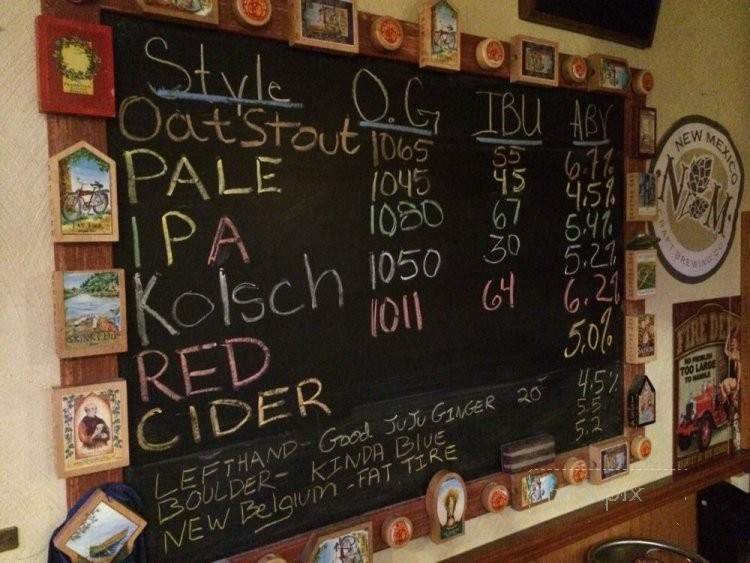 Style O.G IBU ABV
Oat Stout 1065 55 6.7%
PALE 1045 45 4.5%
IPA 1080 67 5.4%
Kolsch 1050 30 5.2%
RED 1011 64 6.2%
CIDER 5.0%
LEFTHAND- Good JuJu GINGER 20 4.5%
BOULDER- KINDA BLUE 5.5
NEW Belgium -FAT TIRE 5.2
NEW MEXICO
NM
CRAFT BREWING CO.
FIRE DEPT
NO PROBLEM
TOO LARGE
TO HANDLE
FAT TIRE
SKINNY DIP